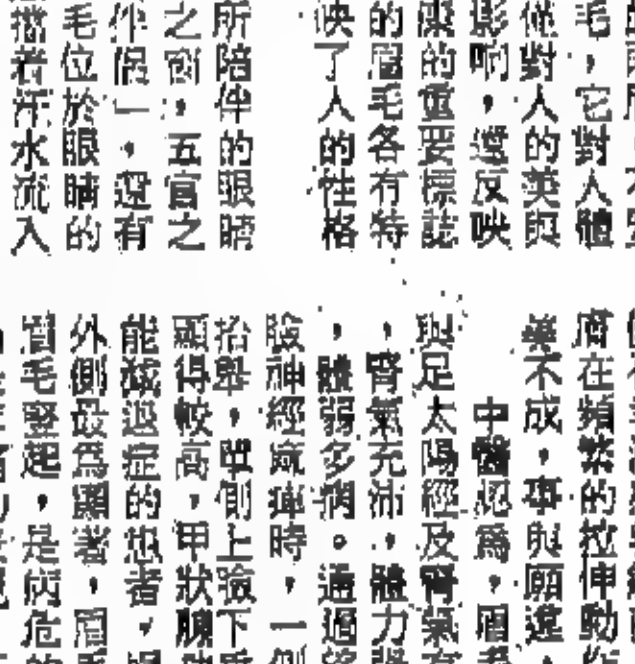 毛，它對人體
僅對人的美與
影响，還反映
的重要標誌
的眉毛各有特
映了人的性格
所陪伴的眼睛
之窗，五官之
伴侶一，還有
毛位於眼睛的
擋着汗水流入
在頻繁的拉伸動
不成，事與願違，
中醫認爲，眉
與足太陽經及腎氣有
，腎氣充沛，體力
，體弱多病。通過
神經麻痺時，一側
抬舉，單側上瞼下
顯得較高，甲狀腺
能減退症的患者，
外側最爲顯著，眉
眉毛豎起，是病危